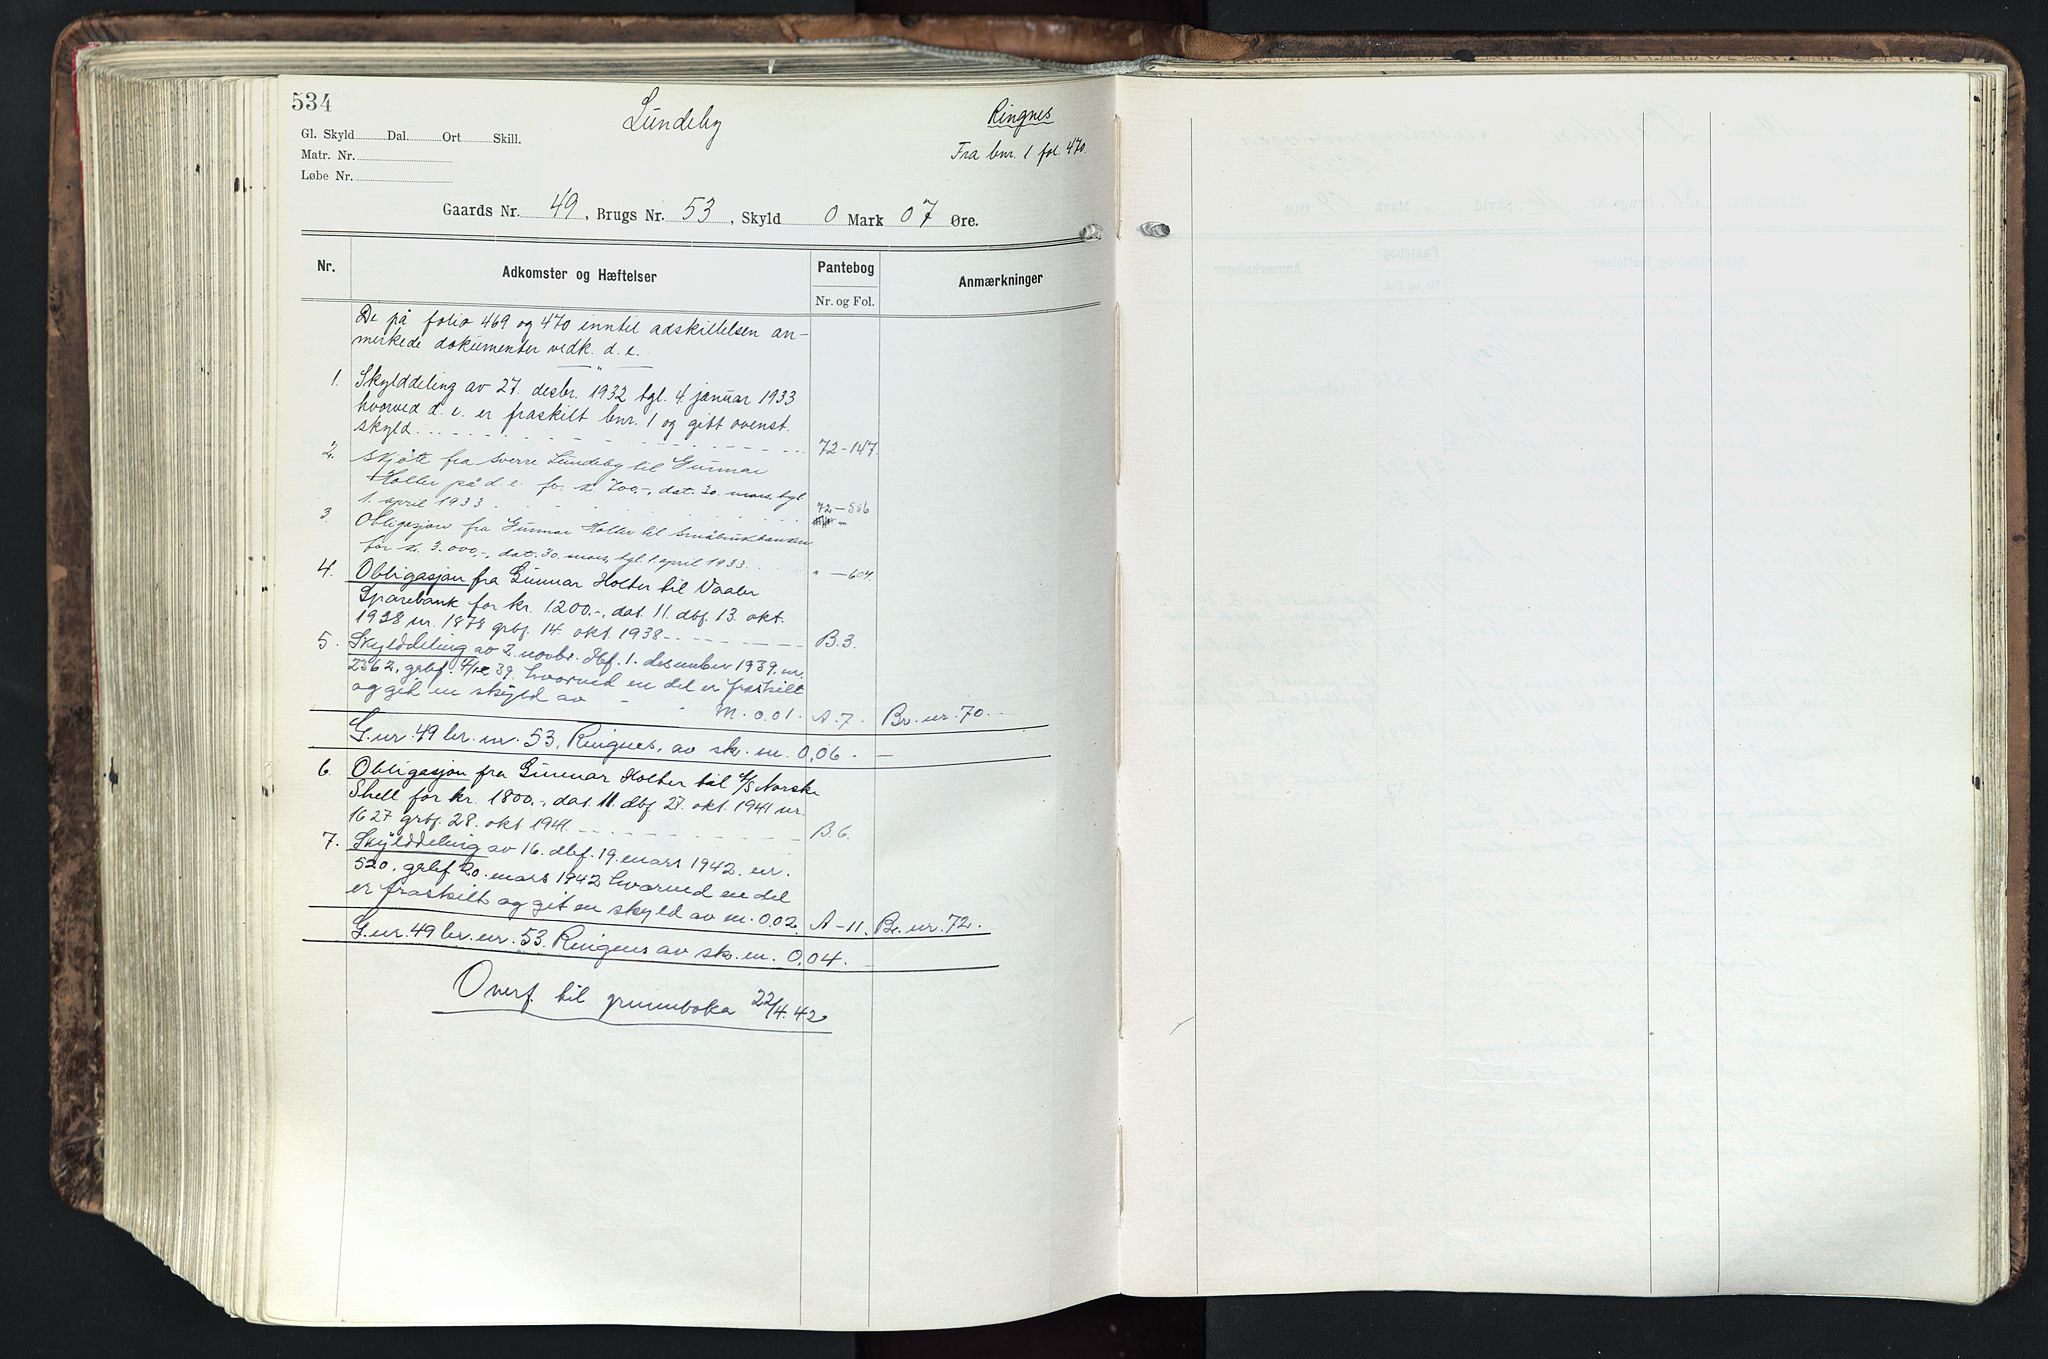 534
Lundeby
Ringnes
Fra bnr. 1 fol. 470.
Gl. Skyld Dal. Ort Skill.
Matr. Nr.
Løbe Nr.
Gaards Nr. 49, Brugs Nr. 53, Skyld 0 Mark 07 Øre.
Nr. Adkomster og Hæftelser Pantebog Anmærkninger
Nr. og Fol.
De på folio 469 og 470 inntil adskillelsen an-
merkede dokumenter vedk. d. e.
1. Skylddeling av 27. desbr. 1932 tgl. 4. januar 1933
hvorved d. e. er fraskilt bnr. 1 og gitt ovenst.
skyld. 72-147
2. Skjøte fra Sverre Lundeby til Gunnar
Holter på d. e. for kr. 700.-, dat. 30. mars, tgl.
1. april 1933 72-536
3. Obligasjon fra Gunnar Holter til Småbrukbanken
for kr. 3.000,-, dat. 30. mars, tgl. 1. april 1933. " -604.
4. Obligasjon fra Gunnar Holter til Vaaler
Sparebank for kr. 1200.-, dat. 11. dbf. 13. okt.
1938 nr. 1878 grbf. 14. okt. 1938 B.3.
5. Skylddeling av 2. novbr. dbf. 1. desember 1939. nr.
2362, grbf. 4/12 39. hvorved en del er fraskilt
og git en skyld av M. 0.01. A.7. Br. nr. 70.-
G. nr. 49 br. nr. 53, Ringnes, av sk. m. 0,06. -
6. Obligasjon fra Gunnar Holter til A/S Norske
Shell for kr. 1800.-, dat. 11 dbf. 27. okt. 1941 nr.
1627 grbf. 28. okt 1941. B.6.
7. Skylddeling av 16. dbf. 19. mars 1942. nr.
520. grbf 20. mars 1942 hvorved en del
er fraskilt og git en skyld av m. 0.02. A-11. Br. nr. 72.
G. nr. 49 br. nr. 53. Ringnes av sk. m. 0,04. -
Overf. til grunnboka 22/4. 42